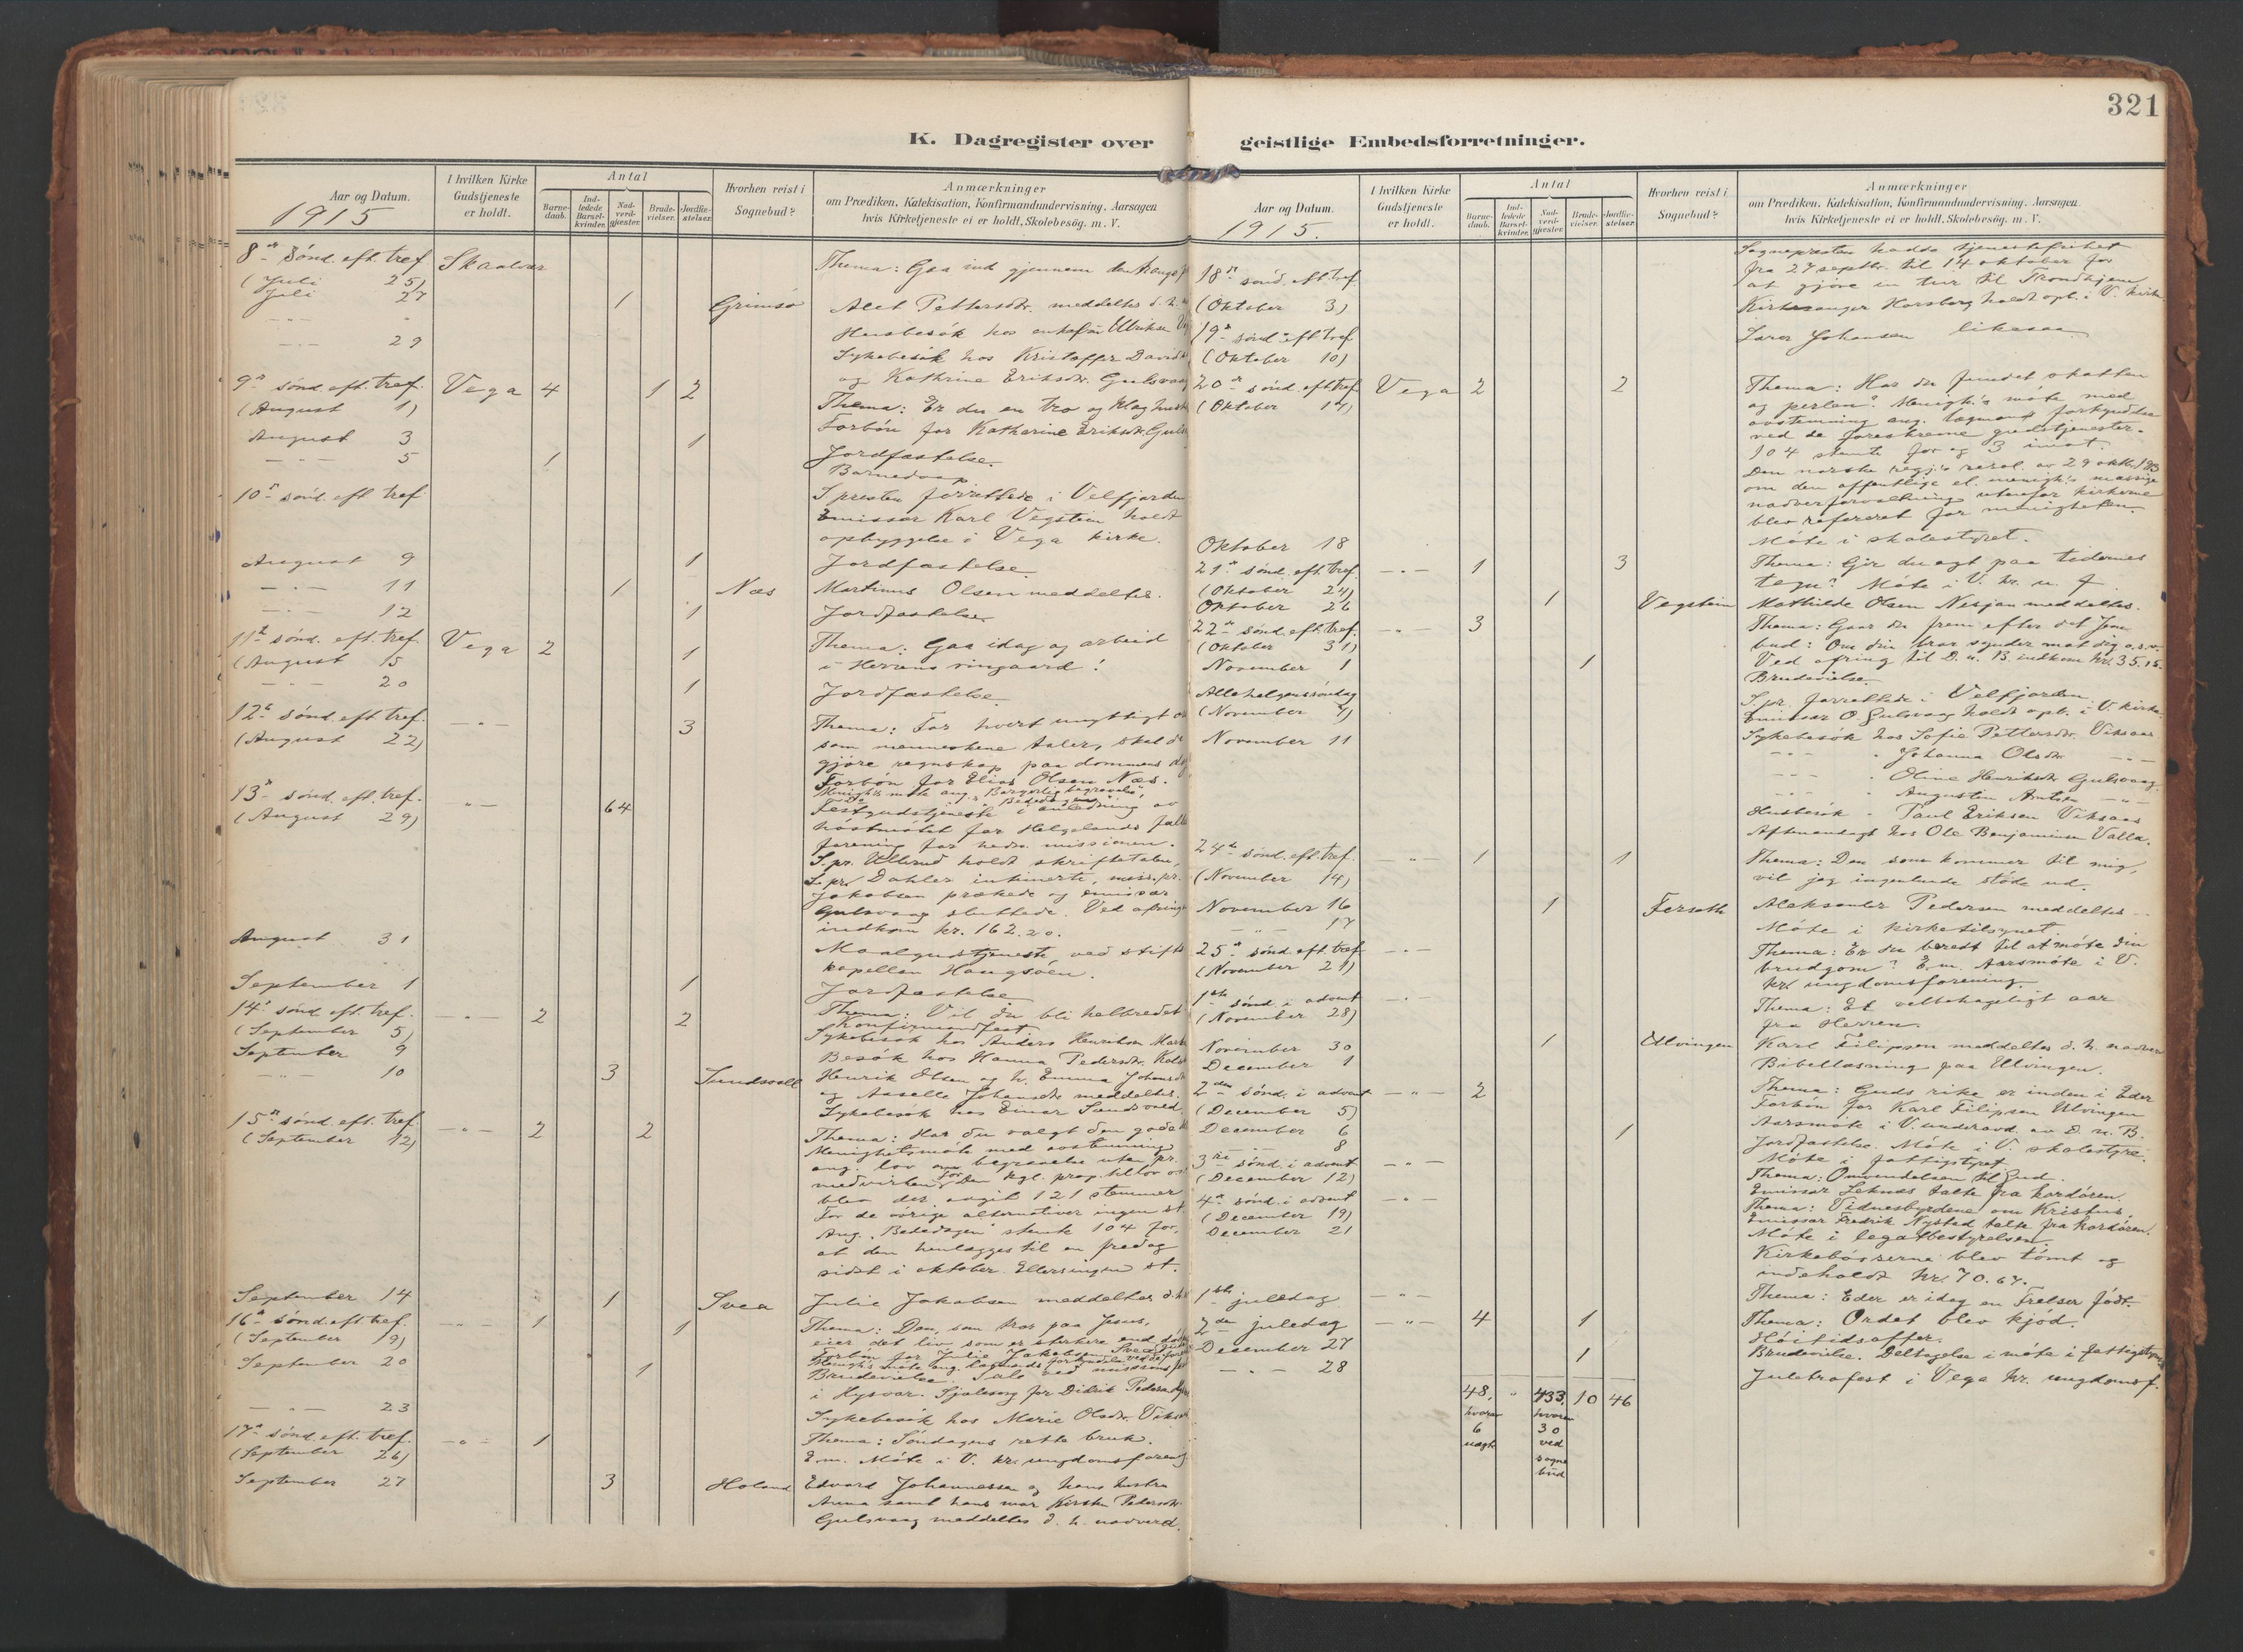 321
K. Dagregister over geistlige Embedsforretninger.
Aar og Datum.
1915
I hvilken Kirke Gudstjeneste er holdt.
Antal
Barne-daab.
Ind-ledede Barsel-kvinder.
Nad-verd-gjester.
Brude-vielser.
Jordfæ-stelser.
Hvorhen reist i Sognebud?
Anmærkninger
om Prædiken, Katekisation, Konfirmandundervisning. Aarsagen
hvis Kirketjeneste ei er holdt, Skolebesög. m. V.
8de sönd. eft. tref. Skaalvær Thema: Gaa ind gjennem den trange
(Juli 25)
Juli 27 1 Grimsö Alet Pettersdtr. meddeltes d. h.
Husbesök hos enkefru Ulriksen
29 Sykebesök hos Kristoffer David
og Kathrine Eriksdtr. Gulsvaag
9de sönd. eft. tref. Vega 4 1 2 Thema: Er du en tro og klog
(August 1) Forbön for Katharine Eriksdtr.
August 3 1 Jordfæstelse.
5 1 Barnedaap.
10de sönd. eft. tref. S.presten forrettede i Velfjorden
Emissær Karl Vegstein holdt
opbyggelse i Vega kirke.
August 9 1 Jordfæstelse
11 1 Næs Martinus Olsen meddeltes.
12 1 Jordfæstelse
11te sönd. eft. tref. Vega 2 1 Thema: Gaa idag og arbeid
(August 15 i Herrens vingaard!
20 1 Jordfæstelse
12te sönd. eft. tref. 3 Thema: For hvert unyttigt
(August 22) som menneskene taler, skal de
gjöre regnskap paa dommens
Forbön for Elias Olsen Næs.
Menigh.s möte ang. Borgerlig begravelse,
Bededagen
13de sönd. eft. tref. 64 Festgudstjeneste i anledning av
(August 29) höstmötet for Helgelands
forening for hedn. missionen.
S.pr. Ullerud holdt skriftetalen,
S.pr. Dahler intimerte, miss.pr.
Jakobsen prækede og emissær
Gulsvaag sluttede. Ved ofringen
indkom kr. 162.20.
August 31 Maalgudstjeneste ved stifts
kapellan Haugsöen.
September 1 1 Jordfæstelse
14de sönd. eft. tref. 2 2 Thema: Vil du bli helbredet
(September 5) Konfirmandfest
September 9 Sykebesök hos Anders Henriksen
Besök hos Hanna Pedersdtr.
10 3 Sundsvoll Henrik Olsen og h. Emma
og Aaselle Johansdtr. meddeltes.
Sykebesök hos Einar Sundsvold.
15de sönd. eft. tref. 2 2 Thema: Har du valgt den gode
(September 12) Menighetsmöte med avstemning
ang. lov om begravelse uten pr.
medvirkning. For Den kgl. prop. til lov
blev der avgit 121 stemmer
For de övrige alternativer ingen st.
Ang. "Bededagen" stemte 104 for,
at den henlægges til en fredag
sidst i oktober. Ellers ingen st.
September 14 1 Svea Julie Jakobsen meddeltes d. h.
16de sönd. eft. tref. 1 1 Thema: Den, som tror paa Jesus,
(September 19) eier det liv som er sterkere end
Forbön for Julie Jakobsen, Svea
September 20 1 Brudevielse. Tale ved
i Hysvær. Sjælesorg for Didrik Pedersen
23 Sykebesök hos Marie Olsdtr.
17de sönd. eft. tref. 1 Thema: Söndagens rette bruk.
(September 26) E.m. Möte i V. kr. ungdomsforening
September 27 3 Holand Edvard Johannessen og hans hustru
Anna samt hans mor Kirsten Pedersdtr.
Gulsvaag meddeltes d. h. nadverd.
Aar og Datum.
1915.
I hvilken Kirke Gudstjeneste er holdt.
Antal
Barne-daab.
Ind-ledede Barsel-kvinder.
Nad-verd-gjester.
Brude-vielser.
Jordfæ-stelser.
Hvorhen reist i Sognebud?
Anmærkninger
om Prædiken, Katekisation, Konfirmandundervisning. Aarsagen
hvis Kirketjeneste ei er holdt, Skolebesög. m. V.
Sognepresten hadde tjenestefrihet
fra 27 septbr. til 14 oktober for
at gjöre en tur til Trondhjem
18de sönd. eft. tref.
(Oktober 3) Kirkesanger Horsberg holdt opb. i V. kirke
19de sönd. eft. tref
(Oktober 10) Lærer Johansen likesaa
20de sönd. eft. tref Vega 2 2 Thema: Har du fundet skatten
(Oktober 17) og perlen? Menigh.s möte med
avstemning ang. lægmands forkyndelse
ved de foreskrevne gudstjenester.
104 stemte for og 3 imot.
Den norske regj.s resol. av 29 oktbr. 1913
om den offentlige el. menigh.s mæssige
nadverforvaltning utenfor kirkerne
blev refereret for menigheten.
Oktober 18 Möte i skolestyret.
21de sönd. eft. tref. 1 3 Thema: Gir du agt paa tidernes
(Oktober 24) tegn? Möte i V. kr. u. f.
Oktober 26 1 Vegstein Mathilde Olsen Nesjan meddeltes.
22de sönd. eft. tref. 3 Thema: Gaar du frem efter det
(Oktober 31) bud: Om din bror synder mot dig o.s.v.
Ved ofring til D. u. B. indkom kr. 35.15.
November 1 1 Brudevielse
Allehelgenssöndag S.pr. forrettede i Velfjorden
(November 7) Emissær O. Gulsvaag holdt opb. i V. kirke.
November 11 Sykebesök hos Sofie Pettersdtr. Viksaas
Johanna Olsdtr.
Oline Henriksdtr. Gulsvaag.
Augustin Arntsen
Husbesök Paul Eriksen Viksaas
Aftenandagt hos Ole Benjaminsen Valla.
24de sönd. eft. tref. 1 1 Thema: Den som kommer til mig,
(November 14) vil jeg ingenlunde stöte ud.
November 16 1 Forseth Aleksander Pedersen meddeltes
17 Möte i kirketilsynet
25de sönd. eft. tref. Thema: Er du beredt til at möte din
(November 21) brudgom? E.m. Aarsmöte i V.
kr. ungdomsforening.
1ste sönd. i advent Thema: Et velbehageligt aar
(November 28) fra Herren.
November 30 1 Ulvingen Karl Filipsen meddeltes d. h. nadver
December 1 Bibellæsning paa Ulvingen.
2den sönd. i advent 2 Thema: Guds rike er inden i Eder
(December 5) Forbön for Karl Filipsen Ulvingen
December 6 Aarsmöte i V. underavd. av D. u. B.
8 1 Jordfæstelse. Möte i V. skolestyre.
Möte i fattigstyret.
3die sönd. i advent Thema: Omvendelsen til Gud.
(December 12) Emissær Leknes talte fra kordören.
4de sönd. i advent Thema: Vidnesbyrdene om Kristus.
(December 19) Emissær Fredrik Nystad talte fra kordören.
December 21 Möte i legatbestyrelsen
Kirkebösserne blev tömt og
indeholdt kr. 70.67.
1ste juledag Thema: Eder er idag en Frelser födt.
2den juledag 4 1 Thema: Ordet blev kjöd.
Höitidsoffer.
Desember 27 1 Brudevielse. Deltagelse i möte i fattigstyret
28 Juletræfest i Vega kr. ungdomsf.
48, " 433, 10 46
hvorav 6 uægte
hvorav 30 ved sogne bud